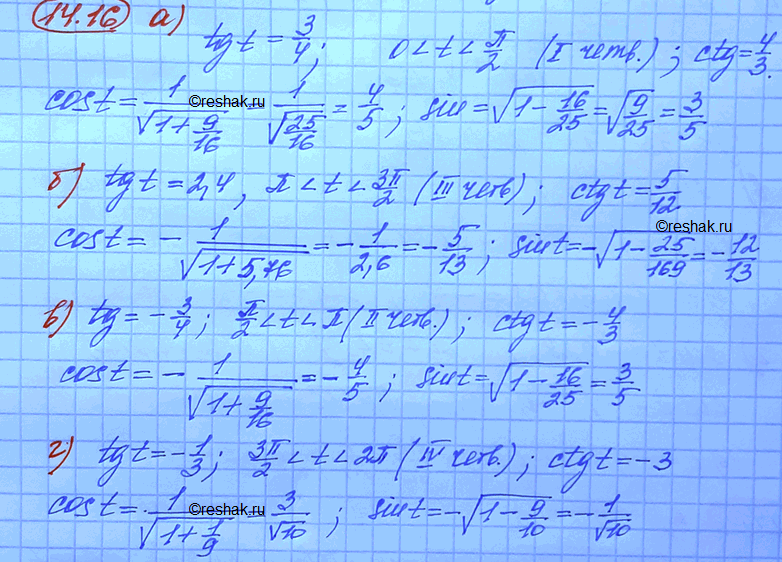 14.16 а)
tg t = 3/4; 0 < t < π/2 (I четв.); ctg = 4/3.
cos t = 1/√(1+9/16) = 1/√(25/16) = 4/5; sin = √(1-16/25) = √(9/25) = 3/5
©reshak.ru
б) tg t = 2,4, π < t < 3π/2 (III четв); ctg t = 5/12
©reshak.ru
cos t = - 1/√(1+5,76) = - 1/2,6 = - 5/13; sin t = -√(1-25/169) = - 12/13
в) tg = - 3/4; π/2 < t < π (II четв.); ctg t = - 4/3
cos t = - 1/√(1+9/16) = - 4/5; sin t = √(1-16/25) = 3/5
г) tg t = - 1/3; 3π/2 < t < 2π (IV четв.); ctg t = -3
cos t = 1/√(1+1/9) = 3/√10; sin t = -√(1-9/10) = - 1/√10
©reshak.ru